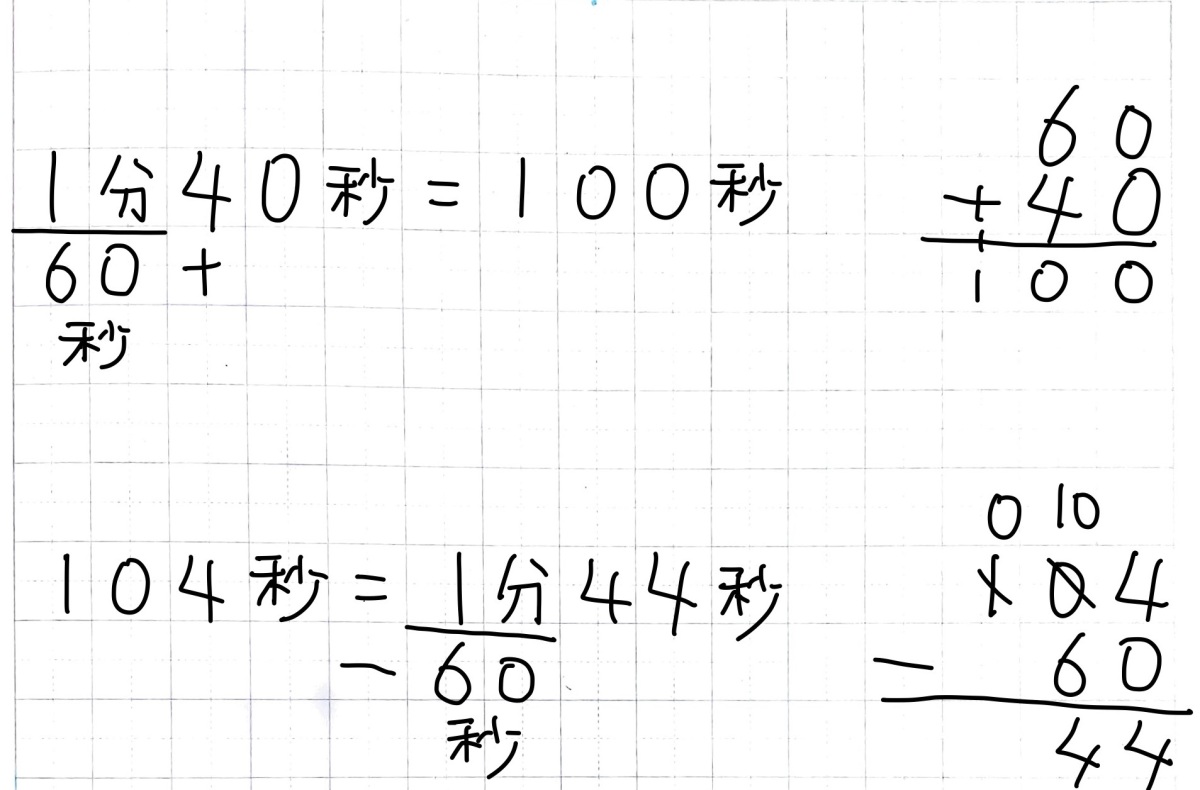 1分40秒=100秒
60+
秒
60
+40
100
104秒=1分44秒
-60
秒
0 10
104
- 60
44